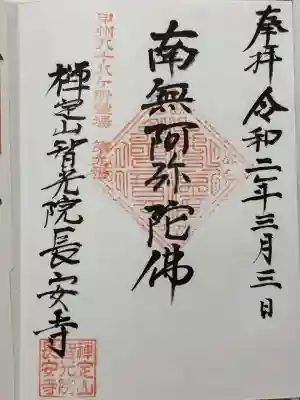 奉拝 令和二年三月三日
南無阿弥陀佛
甲州八十八ヶ所霊場
禅定山智光院長安寺
禅定山
智光院
長安寺